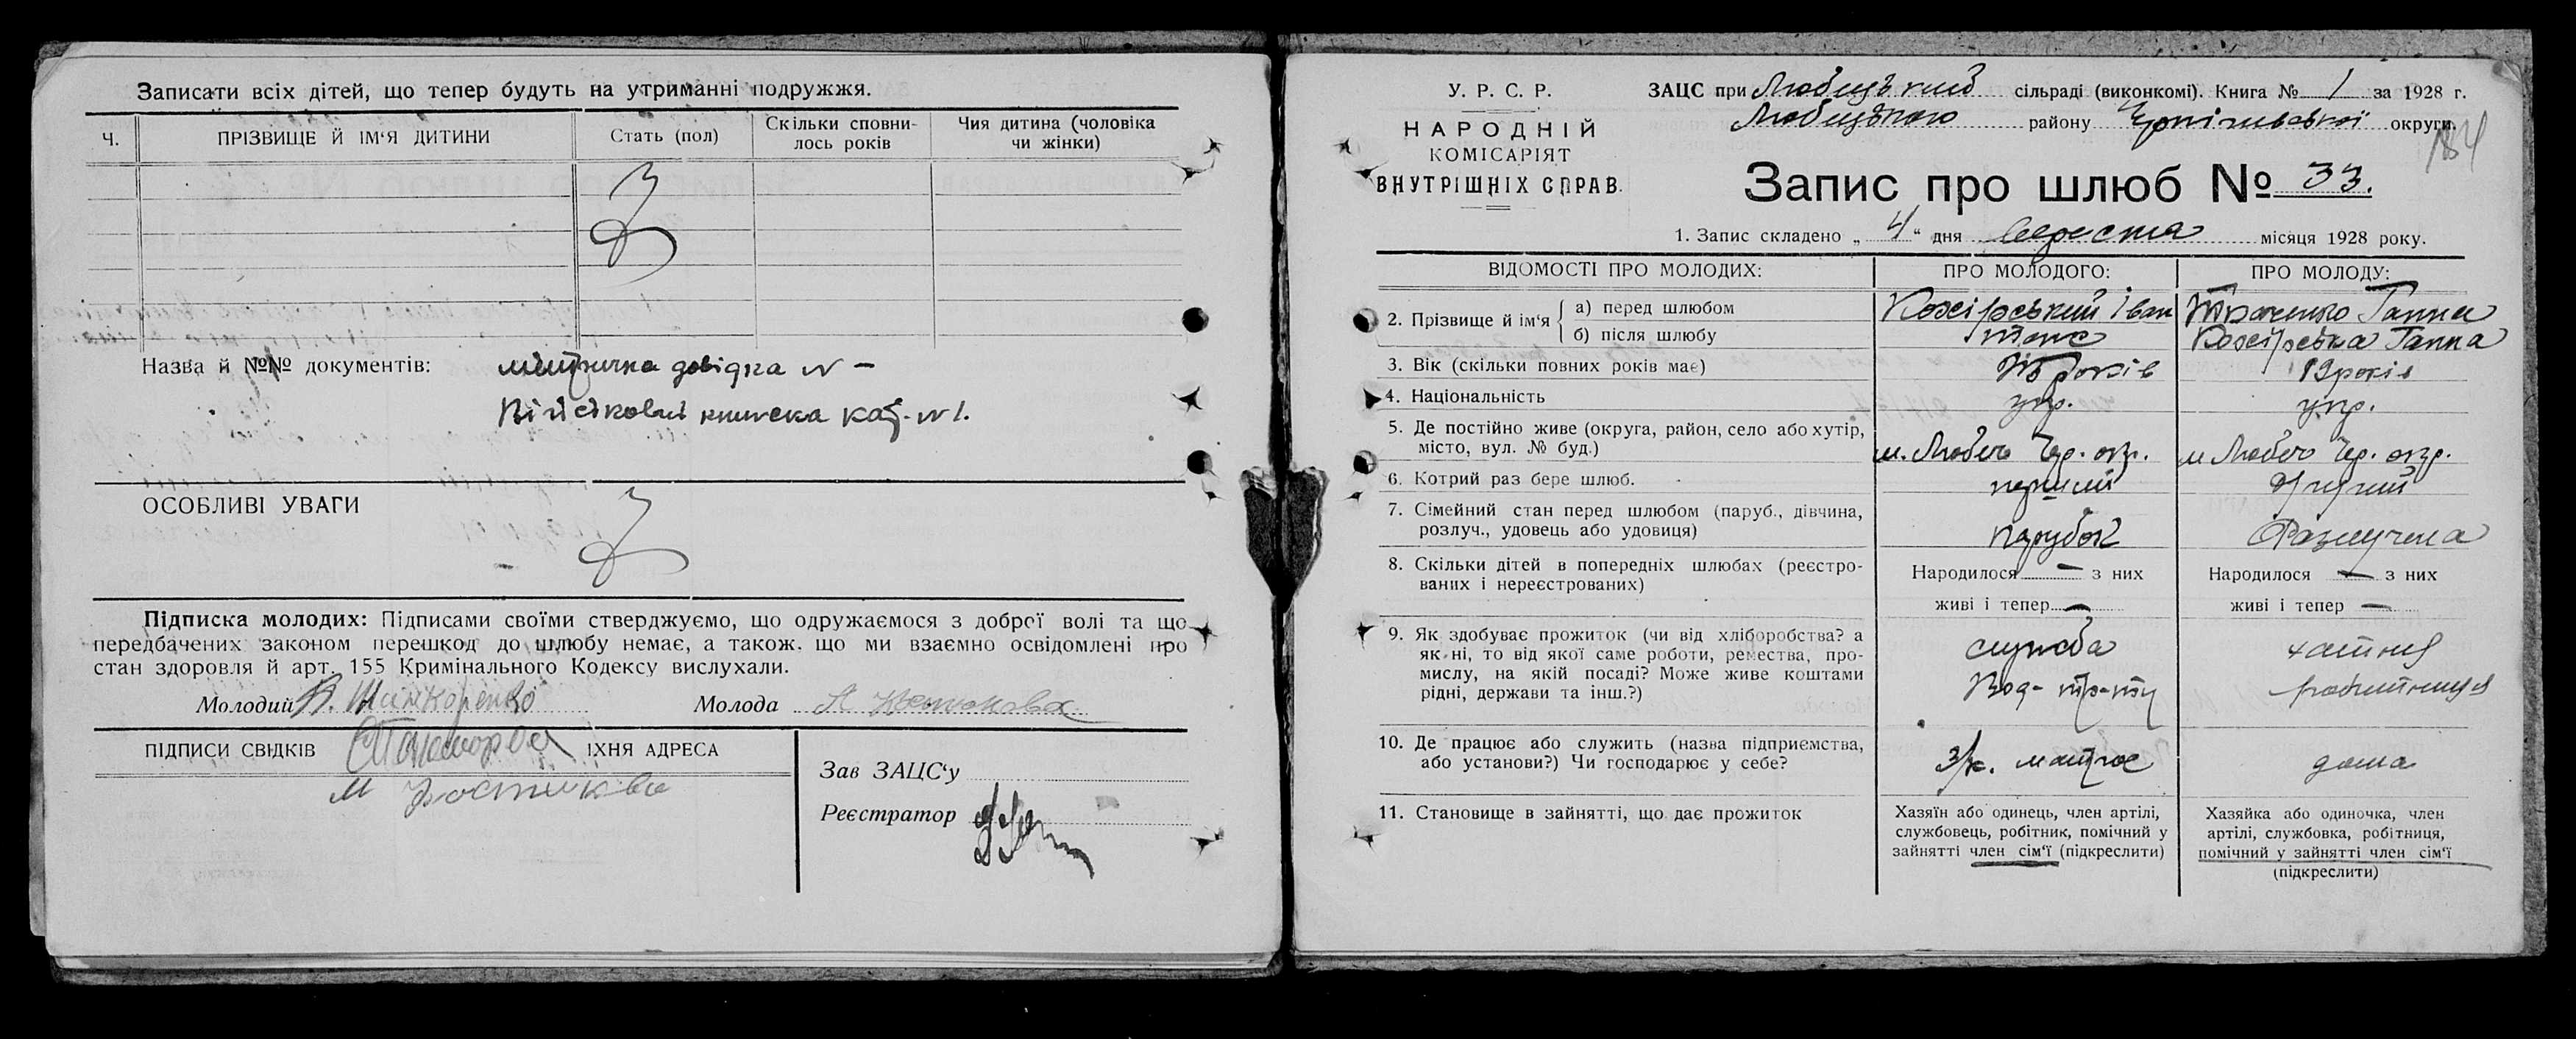 Записати всіх дітей, що тепер будуть на утриманні подружжя.
Ч.
ПРІЗВИЩЕ Й ІМ'Я ДИТИНИ
Стать (пол)
Скільки сповни-
лось років
Чия дитина (чоловіка
чи жінки)
Назва й №№ документів:
метрична довідка №—
Військова книжка кат. №1.
ОСОБЛИВІ УВАГИ
Підписка молодих: Підписами своїми стверджуємо, що одружаємося з доброї волі та що
передбачених законом перешкод до шлюбу немає, а також. що ми взаємно освідомлені про
стан здоровля й арт. 155 Кримінального Кодексу вислухали.
Молодий
Молода
ПІДПИСИ СВІДКІВ
ЇХНЯ АДРЕСА
Зав ЗАЦС'у
Реєстратор
У. Р. С. Р.
НАРОДНІЙ
КОМІСАРІЯТ
ВНУТРІШНІХ СПРАВ.
ЗАЦС при Любецький сільраді (виконкомі). Книга № 1 за 1928 г.
Любецького району Чернігівської округи.
184
Запис про шлюб № 33.
1. Запис складено „4“ дня вересня місяця 1928 року.
ВІДОМОСТІ ПРО МОЛОДИХ:
ПРО МОЛОДОГО:
ПРО МОЛОДУ:
2. Прізвище й ім'я
а) перед шлюбом
Іван
Ткаченко Ганна
б) після шлюбу
тоже
Ганна
3. Вік (скільки повних років має)
років
19 років
4. Національність
укр.
укр.
5. Де постійно живе (округа, район, село або хутір,
місто, вул. № буд.)
м. Любеч Чер. окр.
м Любеч Чер. окр.
6. Котрий раз бере шлюб.
перший
Другий
7. Сімейний стан перед шлюбом (паруб., дівчина,
розлуч., удовець або удовиця)
парубок
Розлучена
8. Скільки дітей в попередніх шлюбах (реєстро-
ваних і нереєстрованих)
Народилося — з них
живі і тепер —
Народилося — з них
живі і тепер —
9. Як здобуває прожиток (чи від хліборобства? а
як ні, то від якої саме роботи, ремества, про-
мислу, на якій посаді? Може живе коштами
рідні, держави та інш.?)
служба
Вод- тр-ту
хатня
робітниця
10. Де працює або служить (назва підприємства,
або установи?) Чи господарює у себе?
матрос
дома
11. Становище в зайнятті, що дає прожиток
Хазяїн або одинець, член артілі,
службовець, робітник, помічний у
зайнятті член сім'ї (підкреслити)
Хазяйка або одиночка, член
артілі, службовка, робітниця,
помічний у зайнятті член сім'ї
(підкреслити)